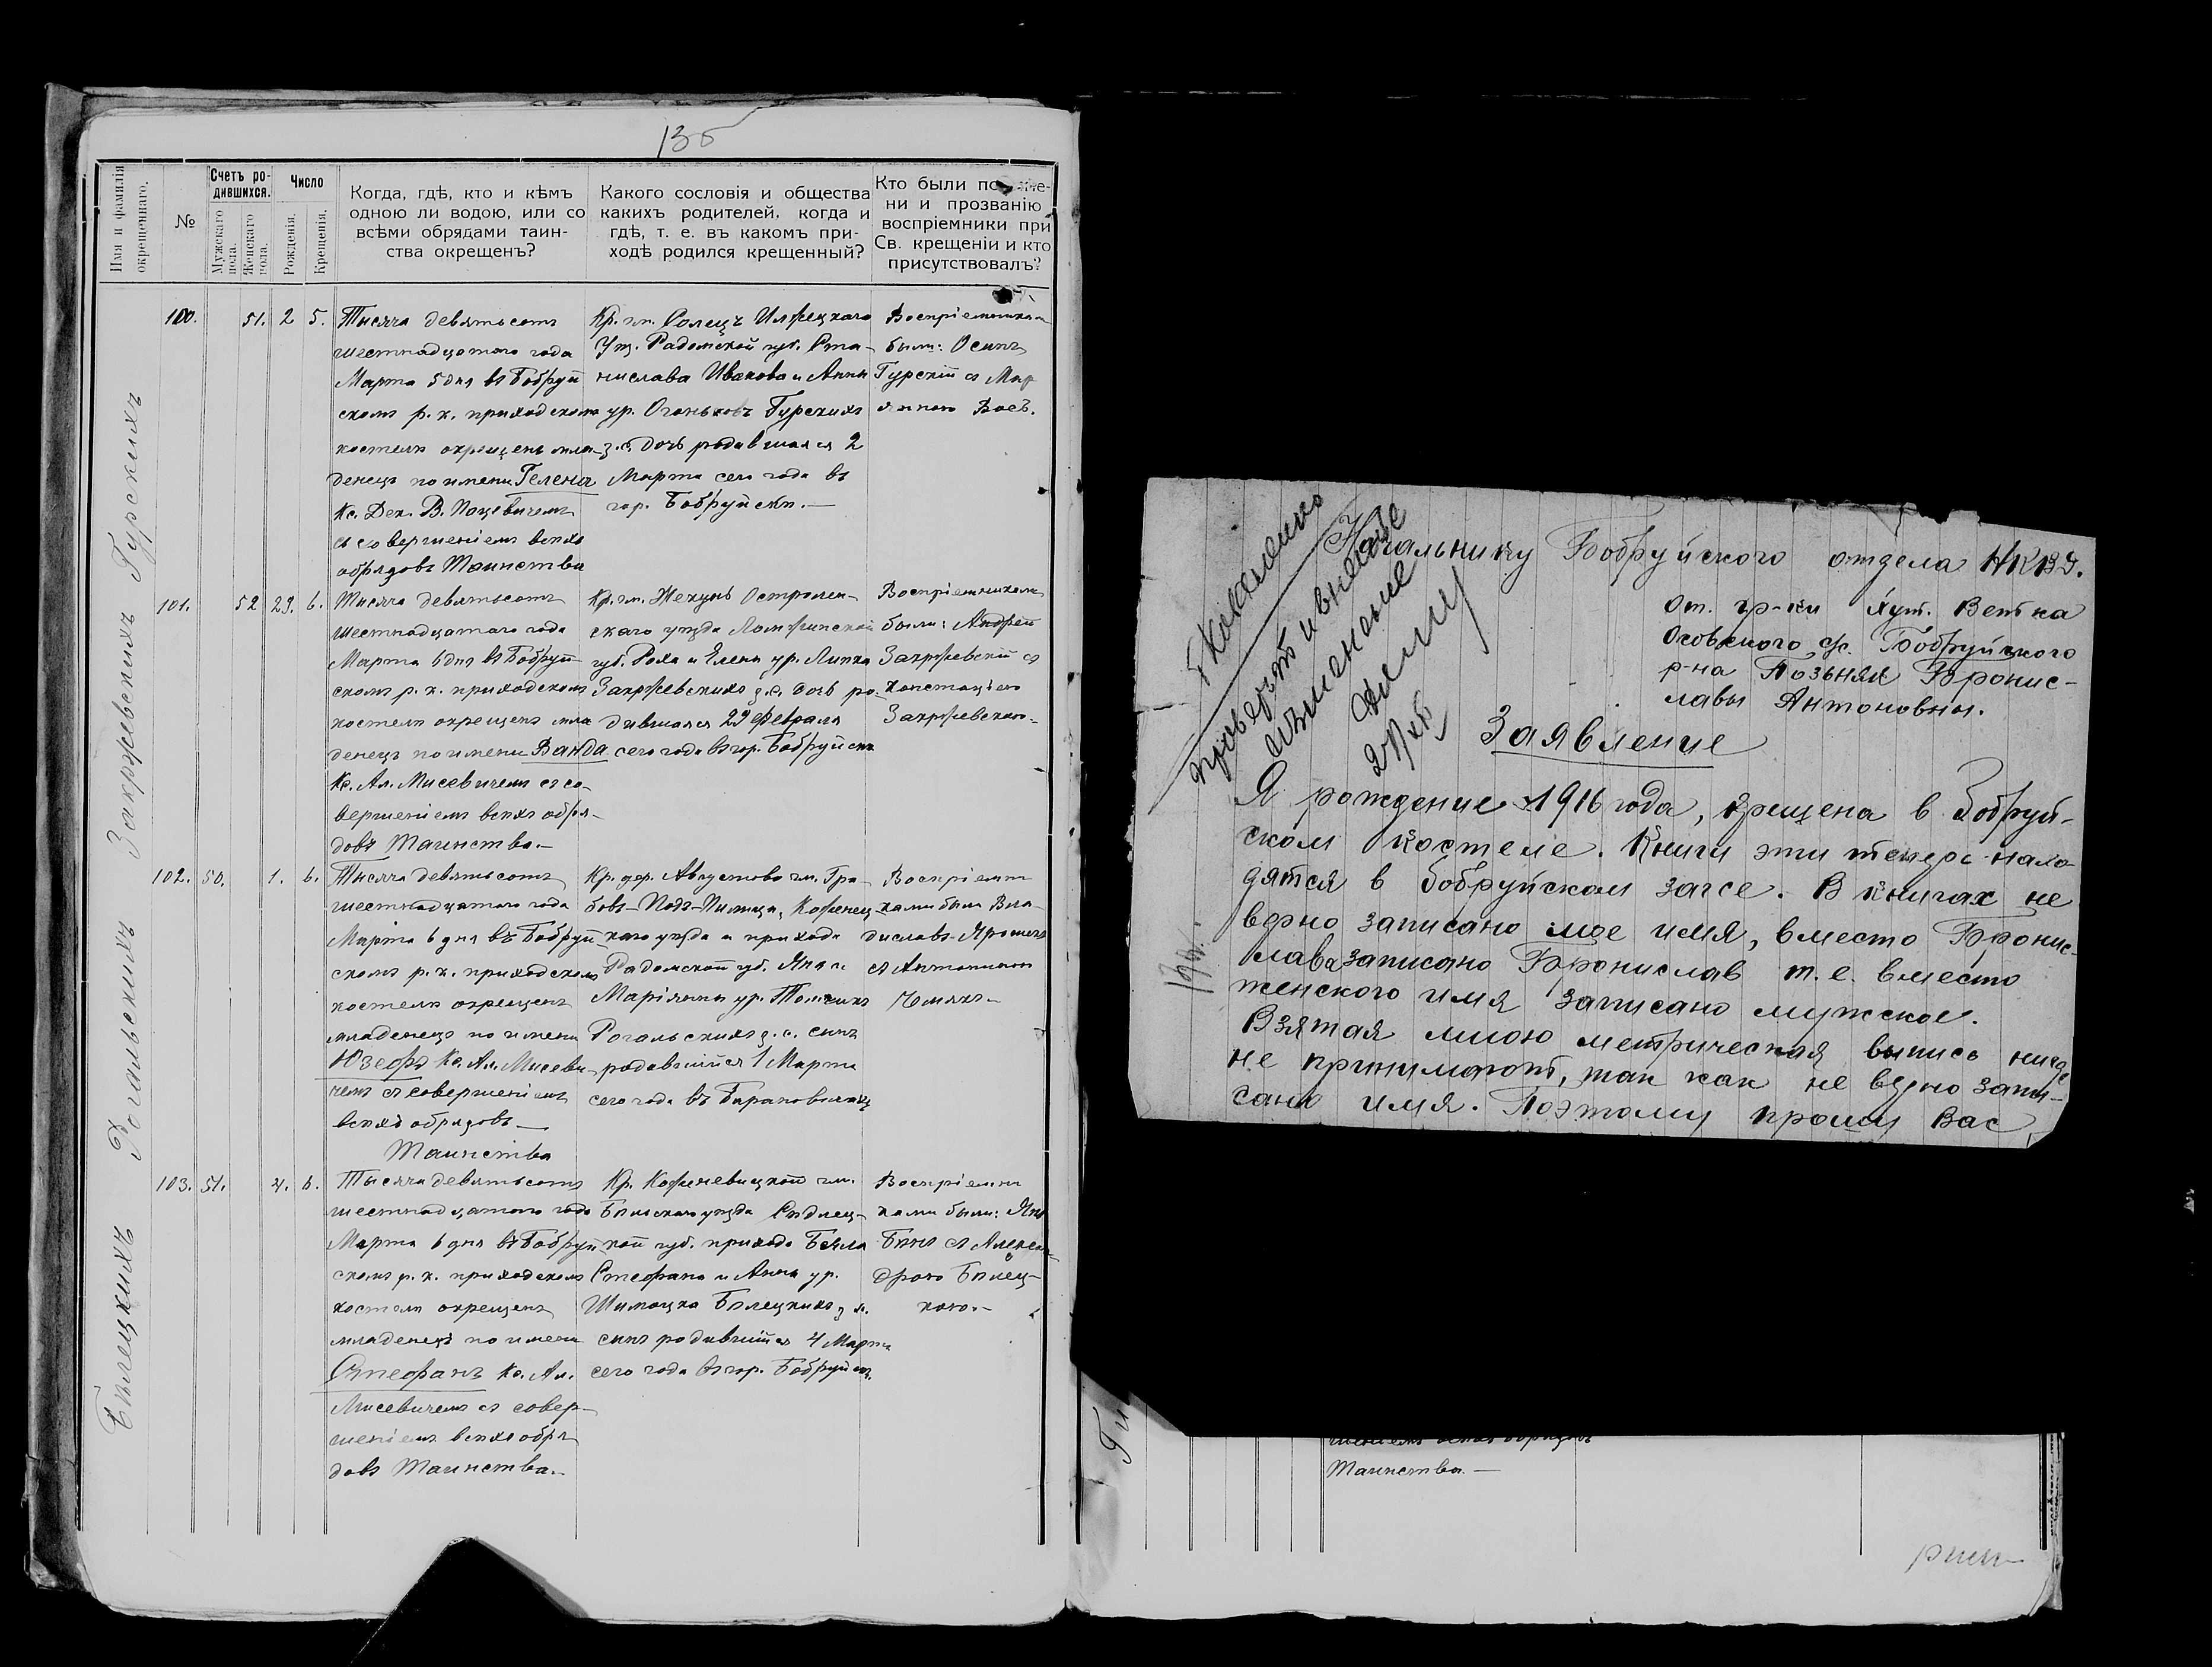 135
Имя и фамилія
окрещеннаго.
№
Счетъ ро-
дившихся.
Мужскаго
пола.
Женскаго
пола.
Число
Рожденія.
Крещенія.
Когда, гдѣ, кто и кѣмъ
одною ли водою, или со
всѣми обрядами таин-
ства окрещенъ?
Какого сословія и общества
какихъ родителей, когда и
гдѣ, т. е. въ какомъ при-
ходѣ родился крещенный?
Кто были по
ни и прозванію
воспріемники при
Св. крещеніи и кто
присутствовалъ?
Гурскихъ
100.
51.
2
5.
Тысяча девятьсотъ
шестнадцатого года
Марта 5 дня въ Бобруй
скомъ р. к. приходскомъ
костелѣ окрещенъ мла-
денецъ по имени Гелена
Кс. Дек. В. Пацевичемъ
съ совершеніемъ всѣхъ
обрядовъ Таинства
Кр. гм. Солецъ Илжецкаго
Уѣз. Радомской губ. Ста-
нислава Ивахова и Анны
ур. Огоньковъ Гурскихъ
з. с. дочь родившаяся 2
Марта сего года въ
гор. Бобруйскѣ.—
Воспріемниками
были: Осипъ
Гурскій съ Мар
янною Воеъ.
Закржевскихъ
101.
52
29.
6.
Тысяча девятьсотъ
шестнадцатого года
Марта 6 дня въ Бобруй-
скомъ р. к. приходскомъ
костелѣ окрещенъ мла
денецъ по имени Ванда
Кс. Ал. Мисевичемъ съ со-
вершеніемъ всѣхъ обря-
довъ Таинства.—
Кр. гм. Жекунь Остролен-
скаго уѣзда Ломжинской
губ. Роха и Елены ур. Липка
Закржевскихъ з. с. дочь ро-
дившаяся 29 Февраля
сего года въ гор. Бобруйскѣ
Воспріемниками
были: Андрей
Закржевскій съ
Констанціею
Закржевскою.
Рогальскихъ
102.
50.
1.
6.
Тысяча девятьсотъ
шестнадцатого года
Марта 6 дня въ Бобруй
скомъ р. к. приходскомъ
костелѣ окрещенъ
младенецъ по имени
Юзефъ Кс. Ал. Мисеви-
чемъ съ совершеніемъ
всѣхъ обрядовъ—
Таинства
Кр. дер. Августово гм. Гра-
бовъ-Надъ-Пилица, Козенец-
каго уѣзда и прихода
Радомской губ. Яна и
Маріянны ур. Томчикъ
Рогальскихъ з. с. сынъ
родившійся 1 Марта
сего года въ Барановичахъ
Воспріемни
ками были Вла-
диславъ Ярошекъ
съ Антониною
Чмихъ.
Бѣлецкихъ
103.
51.
4.
6.
Тысяча девятьсотъ
шестнадцатого года
Марта 6 дня въ Бобруй
скомъ р. к. приходскомъ
костелѣ окрещенъ
младенецъ по имени
Стефанъ Кс. Ал.
Мисевичемъ съ совер-
шеніемъ всѣхъ обря
довъ Таинства.—
Кр. гм.
Бѣльскаго уѣзда Сѣдлец-
кой губ. прихода Бяла
Стефана и Анны ур.
Шимацка Бѣлецкихъ з. с.
сынъ родившійся 4 Марта
сего года въ гор. Бобруйскѣ.
Воспріемни
ками были: Янъ
съ Алексан-
дрою Бѣлец-
кою.—
проверить и внести
изменение
Начальнику Бобруйского отдела НКВД.
От. гр-ки хут. Ветка
Осовского с/с. Бобруйского
р-на Позьняк Бронис-
лавы Антоновны.
Заявление
Я рождение 1916 года, крещена в Бобруй-
ском костеле. Книги эти теперь нахо-
дятся в бобруйском загсе. В книгах не
верно записано мое имя, вместо Бронис-
лава записано Бронислав т. е. вместо
женского имя записано мужское.
Взятая мною метрическая выпись нигде
не принимают, так как не верно запи-
сано имя. Поэтому прошу Вас
шеніемъ всѣхъ обрядовъ
Таинства.—